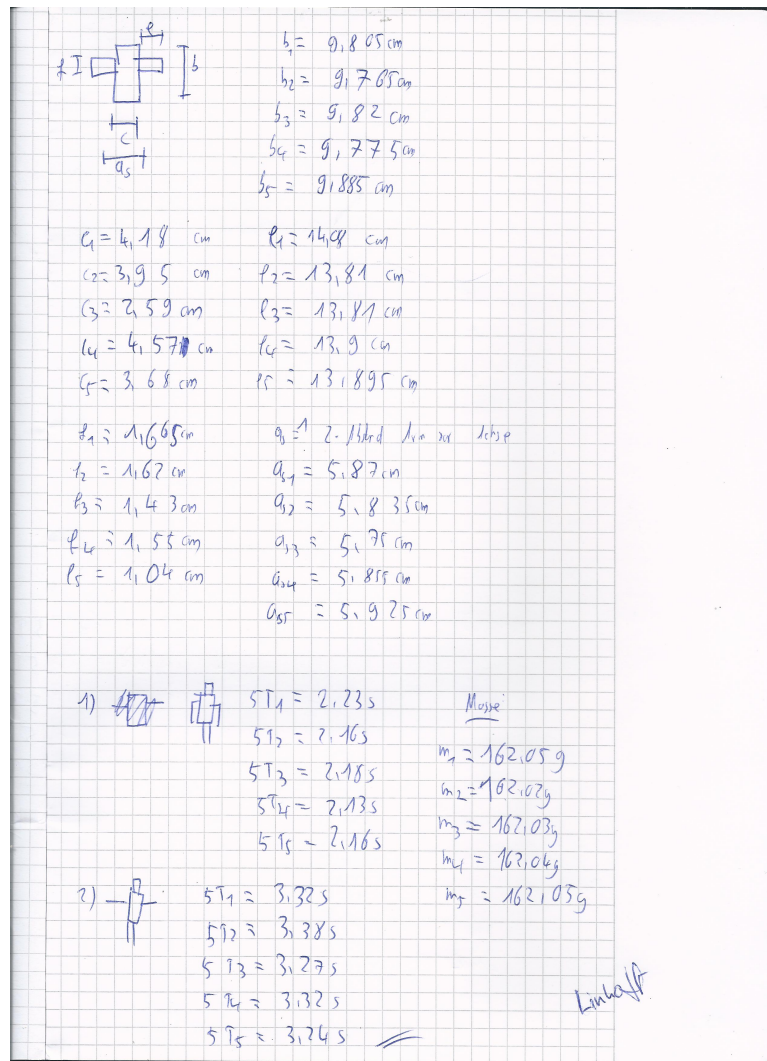 e
f I b
c
a_s
b_1 = 9,805 cm
b_2 = 9,765 cm
b_3 = 9,82 cm
b_4 = 9,775 cm
b_5 = 9,885 cm
c_1 = 4,18 cm
c_2 = 3,95 cm
c_3 = 2,59 cm
c_4 = 4,57 cm
c_5 = 3,68 cm
l_1 = 14,08 cm
l_2 = 13,81 cm
l_3 = 13,81 cm
l_4 = 13,9 cm
l_5 = 13,895 cm
f_1 = 1,665 cm
f_2 = 1,62 cm
f_3 = 1,43 cm
f_4 = 1,55 cm
f_5 = 1,04 cm
a_s1 = 5,87 cm
a_s2 = 5,835 cm
a_s3 = 5,75 cm
a_s4 = 5,855 cm
a_s5 = 5,925 cm
1)
5T_1 = 2,23 s
5T_2 = 2,16 s
5T_3 = 2,18 s
5T_4 = 2,13 s
5T_5 = 2,16 s
Masse
m_1 = 162,05 g
m_2 = 162,02 g
m_3 = 162,03 g
m_4 = 162,04 g
m_5 = 162,05 g
2)
5T_1 = 3,32 s
5T_2 = 3,38 s
5T_3 = 3,27 s
5T_4 = 3,32 s
5T_5 = 3,24 s